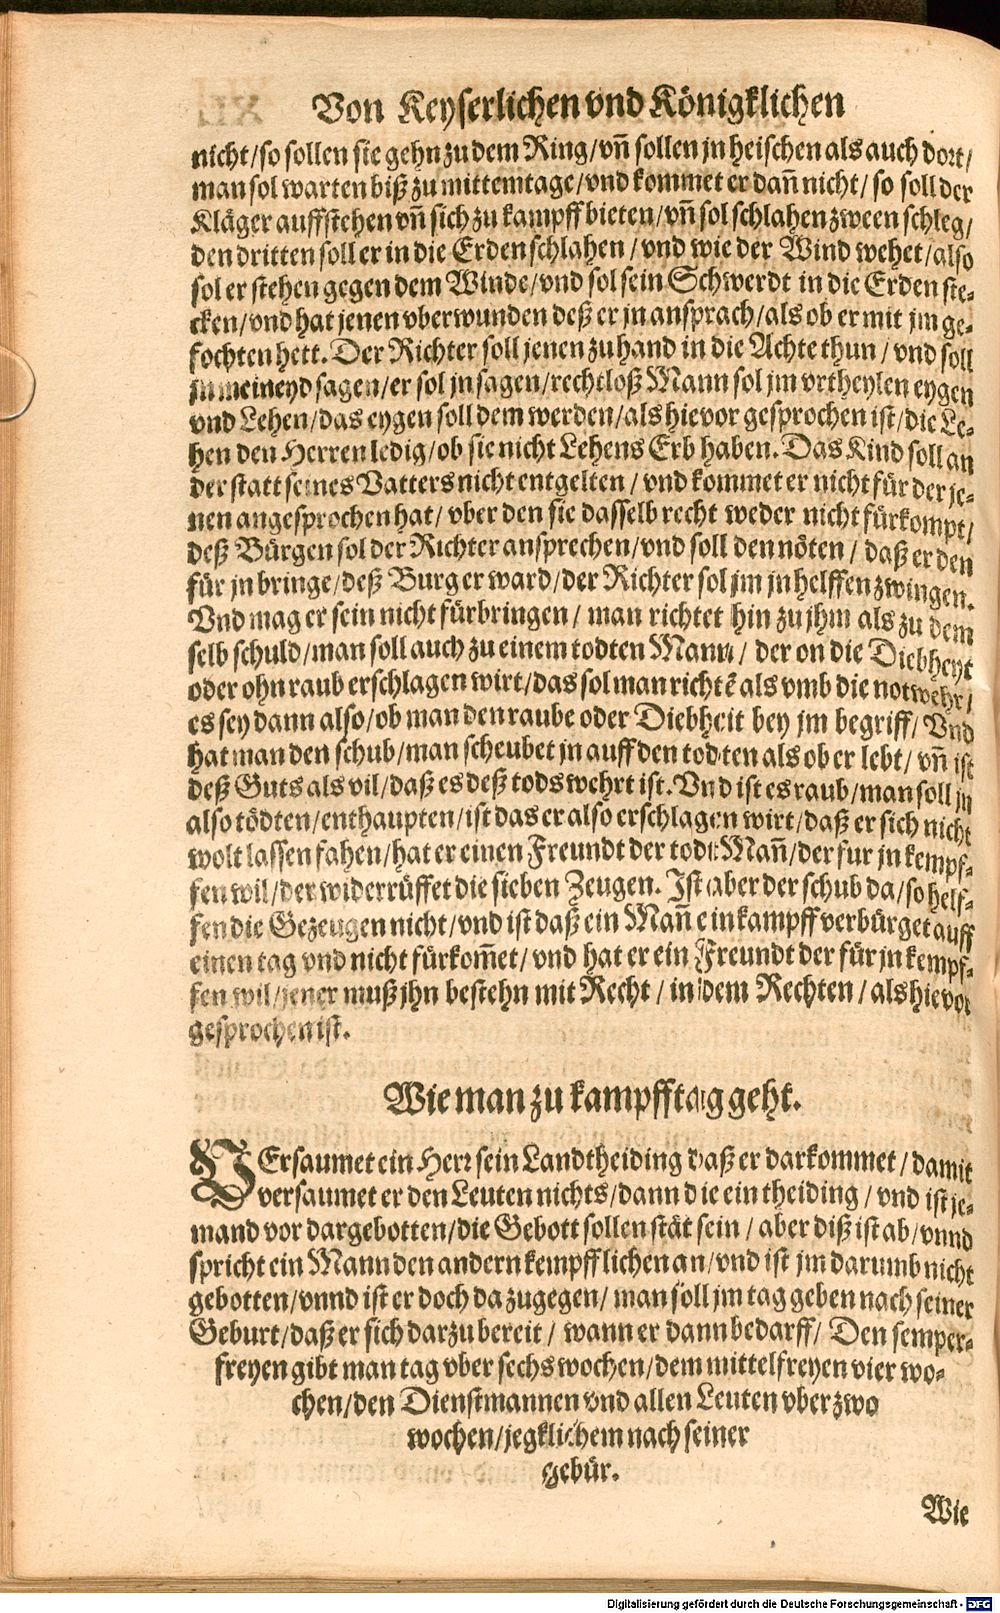 Von Keyserlichen vnd Königklichen
nicht/so sollen sie gehn zu dem Ring/vñ sollen jn heischen als auch dort/
man sol warten biß zu mittemtage/vnd kommet er dañ nicht/ so soll der
Kläger auffstehen vñ sich zu kampff bieten/vñ sol schlahen zween schleg/
den dritten soll er in die Erden schlahen / vnd wie der Wind wehet/also
sol er stehen gegen dem Winde/vnd sol sein Schwerdt in die Erden ste-
cken/vnd hat jenen vberwunden deß er jn ansprach/als ob er mit jm ge-
fochten hett. Der Richter soll jenen zuhand in die Achte thun / vnd soll
jn meineyd sagen/er sol jn sagen/rechtloß Mann sol jm vrtheylen eygen
vnd Lehen/das eygen soll dem werden/als hievor gesprochen ist/die Le-
hen den Herren ledig/ob sie nicht Lehens Erb haben. Das Kind soll an
der statt seines Vatters nicht entgelten / vnd kommet er nicht für der je-
nen angesprochen hat/ vber den sie dasselb recht weder nicht fürkompt/
deß Bürgen sol der Richter ansprechen/vnd soll den nöten / daß er den
für jn bringe/deß Burger ward/der Richter sol jm jn helffen zwingen.
Vnd mag er sein nicht fürbringen / man richtet hin zu jhm als zu dem
selb schuld/man soll auch zu einem todten Mann / der on die Diebheyt
oder ohn raub erschlagen wirt/das sol man richtē als vmb die notwehr/
es sey dann also/ob man den raube oder Diebheit bey jm begriff/ Vnd
hat man den schub/man scheubet jn auff den todten als ob er lebt/ vñ ist
deß Guts als vil/daß es deß tods wehrt ist. Vnd ist es raub/man soll jn
also tödten/enthaupten/ist das er also erschlagen wirt/daß er sich nicht
wolt lassen fahen/hat er einen Freundt der todt Mañ/der fur jn kempf-
fen wil/der widerrüffet die sieben Zeugen. Ist aber der schub da/so helf-
fen die Gezeugen nicht/vnd ist daß ein Mañ ein kampff verbürget auff
einen tag vnd nicht fürkom̃et/ vnd hat er ein Freundt der für jn kempf-
fen wil/jener muß jhn bestehn mit Recht / in dem Rechten / als hievor
gesprochen ist.
Wie man zu kampfftag geht.
VErsaumet ein Herr sein Landtheiding daß er darkommet / damit
versaumet er den Leuten nichts/dann die ein theiding / vnd ist je-
mand vor dargebotten/die Gebott sollen stät sein / aber diß ist ab/vnnd
spricht ein Mann den andern kempfflichen an/vnd ist jm darumb nicht
gebotten/vnnd ist er doch da zugegen/ man soll jm tag geben nach seiner
Geburt/daß er sich darzu bereit / wann er dann bedarff/ Den semper-
freyen gibt man tag vber sechs wochen/dem mittelfreyen vier wo-
chen/den Dienstmannen vnd allen Leuten vber zwo
wochen/jegklichem nach seiner
gebür.
Wie
Digitalisierung gefördert durch die Deutsche Forschungsgemeinschaft - DFG